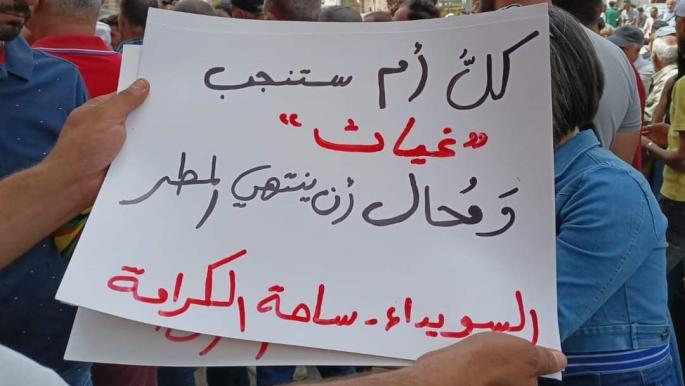 كلُّ أم ستنجب
"غياث"
وَمُحال أن ينتهي المطر
السويداء - ساحة الكرامة